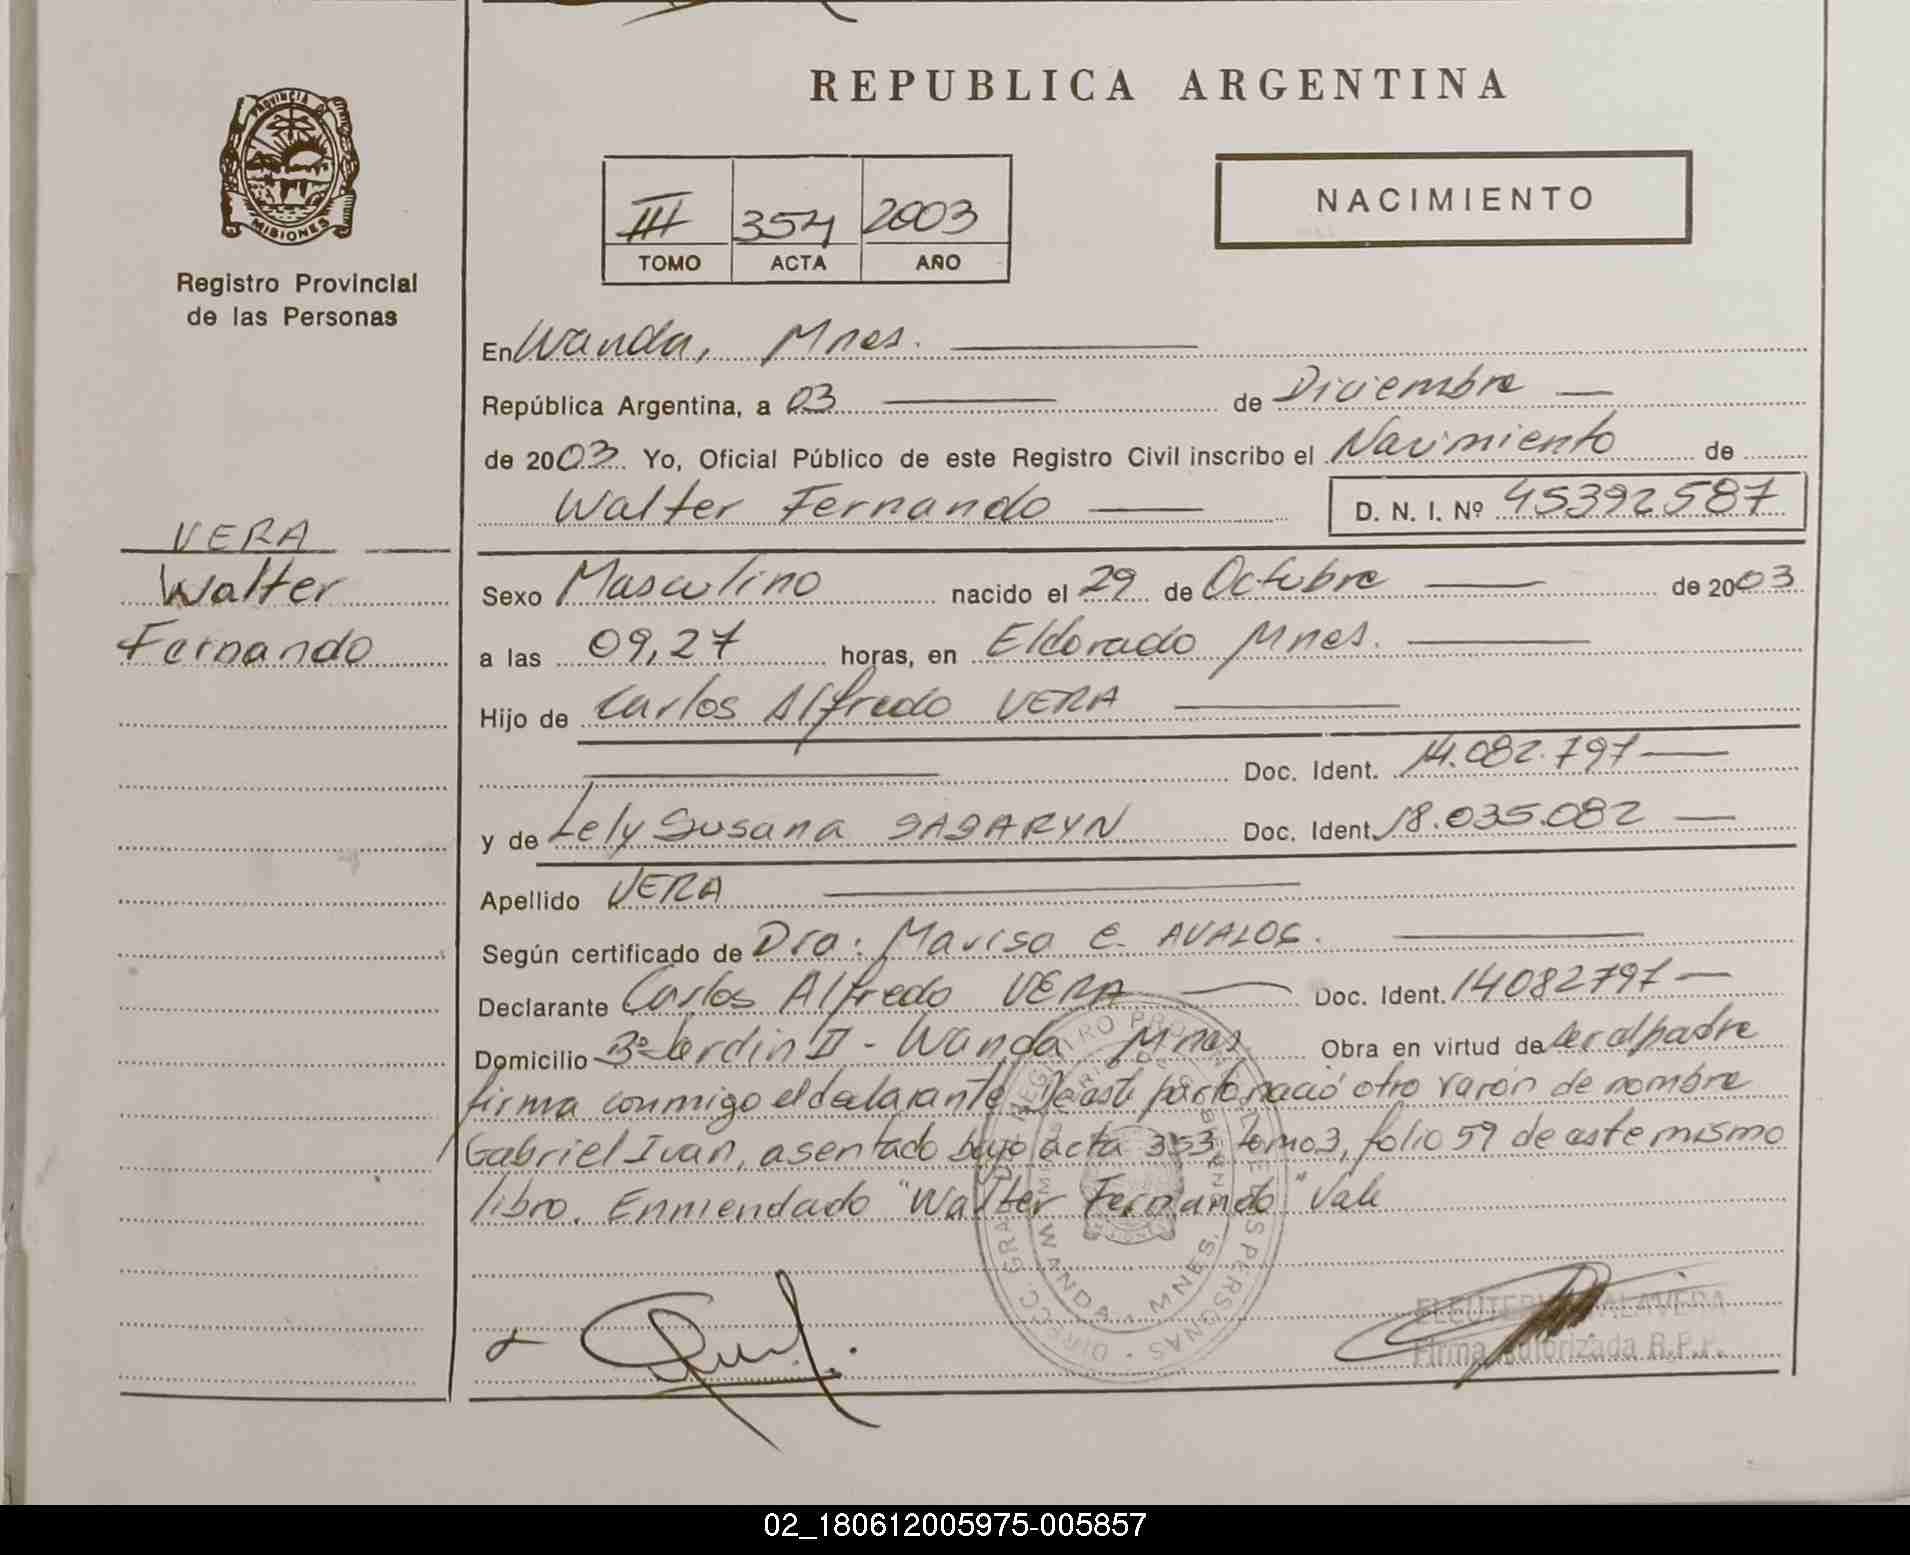 REPUBLICA ARGENTINA
PROVINCIA DE
MISIONES
Registro Provincial
de las Personas
III 354 2003
TOMO ACTA AÑO
NACIMIENTO
En Wanda, Mnes.
República Argentina, a 03 de Diciembre
de 2003 Yo, Oficial Público de este Registro Civil inscribo el Nacimiento de
Walter Fernando D. N. I. Nº 45392587
VERA
Walter
Fernando
Sexo Masculino nacido el 29 de Octubre de 2003
a las 09,27 horas, en Eldorado Mnes.
Hijo de Carlos Alfredo VERA
Doc. Ident. 14.082.797
y de Lely Susana Doc. Ident. 18.035.082
Apellido VERA
Según certificado de Dra: Marisa E. AVALOS.
Declarante Carlos Alfredo VERA Doc. Ident. 14082797
Domicilio Bº Jardin II - Wanda Mnes Obra en virtud de ser el padre
firma conmigo el declarante. De este parto nació otro varón de nombre
Gabriel Ivan, asentado bajo acta 353 tomo 3, folio 59 de este mismo
libro. Enmendado "Walter Fernando" Vale
WANDA - MNES.
ELEUTERIO TALAVERA
Firma Autorizada R.P.P.
02_180612005975-005857